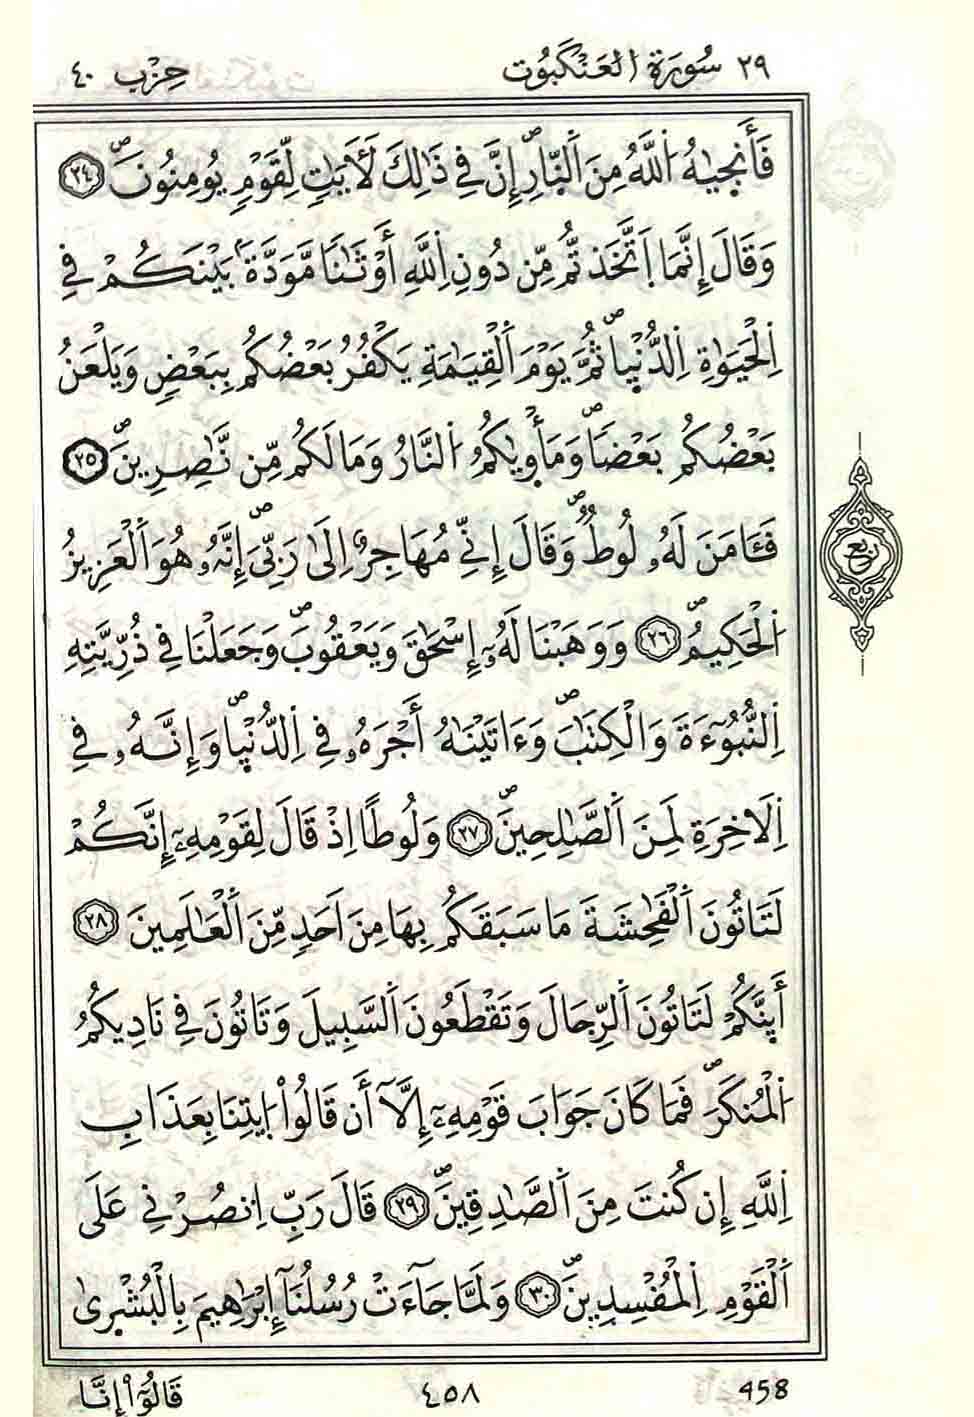 ٢٩ سُورَةُ الْعَنْكَبُوت حِزْب ٤٠
فَأَنج۪يٰهُ اُ۬للَّهُ مِنَ اَ۬لنّ۪ارِۖ إِنَّ فِے ذَٰلِكَ لَأٓيَٰتٖ لِّقَوْمٖ يُومِنُونَۖ ٢٤
وَقَالَ إِنَّمَا اَ۪تَّخَذتُّم مِّن دُونِ اِ۬للَّهِ أَوْثَٰناٗ مَّوَدَّةَۢ بَيْنَكُمْ فِے
اِ۬لْحَيَوٰةِ اِ۬لدُّنْي۪اۖ ثُمَّ يَوْمَ اَ۬لْقِيَٰمَةِ يَكْفُرُ بَعْضُكُم بِبَعْضٖ وَيَلْعَنُ
بَعْضُكُم بَعْضاٗۖ وَمَأْو۪يٰكُمُ اُ۬لنَّارُ وَمَا لَكُم مِّن نَّٰصِرِينَۖ ٢٥
فَـَٔامَنَ لَهُۥ لُوطٞۖ وَقَالَ إِنِّے مُهَاجِرٌ اِلَىٰ رَبِّيَۖ إِنَّهُۥ هُوَ اَ۬لْعَزِيزُ
اُ۬لْحَكِيمُۖ ٢٦ وَوَهَبْنَا لَهُۥٓ إِسْحَٰقَ وَيَعْقُوبَۖ وَجَعَلْنَا فِے ذُرِّيَّتِهِ
اِ۬لنُّبُوٓءَةَ وَالْكِتَٰبَۖ وَءَاتَيْنَٰهُ أَجْرَهُۥ فِے اِ۬لدُّنْي۪اۖ وَإِنَّهُۥ فِے
اِ۬لَاخِرَةِ لَمِنَ اَ۬لصَّٰلِحِينَۖ ٢٧ وَلُوطاً اِذْ قَالَ لِقَوْمِهِۦٓ إِنَّكُمْ
لَتَاتُونَ اَ۬لْفَٰحِشَةَ مَا سَبَقَكُم بِهَا مِنَ اَحَدٖ مِّنَ اَ۬لْعَٰلَمِينَ ٢٨
أَئِنَّكُمْ لَتَاتُونَ اَ۬لرِّجَالَ وَتَقْطَعُونَ اَ۬لسَّبِيلَ وَتَاتُونَ فِے نَادِيكُمُ
اُ۬لْمُنكَرَۖ فَمَا كَانَ جَوَابَ قَوْمِهِۦٓ إِلَّآ أَن قَالُواْ اُ۪يتِنَا بِعَذَابِ
اِ۬للَّهِ إِن كُنتَ مِنَ اَ۬لصَّٰدِقِينَۖ ٢٩ قَالَ رَبِّ اِ۟نصُرْنِے عَلَى
اَ۬لْقَوْمِ اِ۬لْمُفْسِدِينَۖ ٣٠ وَلَمَّا جَآءَتْ رُسُلُنَآ إِبْرَٰهِيمَ بِالْبُشْر۪يٰ
رُبُع
458 ٤٥٨ قَالُوٓاْ إِنَّا